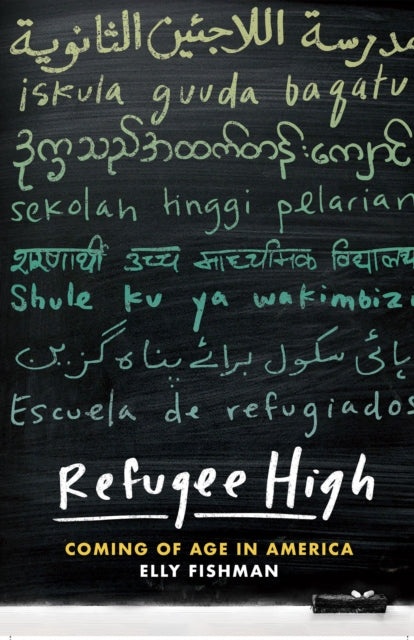 مدرسة اللاجئين الثانوية
iskula guuda baqatu
ဒုက္ခသည်အထက်တန်းကျောင်
sekolah tinggi pelarian
शरणार्थी उच्च माध्यमिक विद्यालय
Shule ku ya wakimbizi
ہائی سکول برائے پناہ گزین
Escuela de refugiados
Refugee High
COMING OF AGE IN AMERICA
ELLY FISHMAN